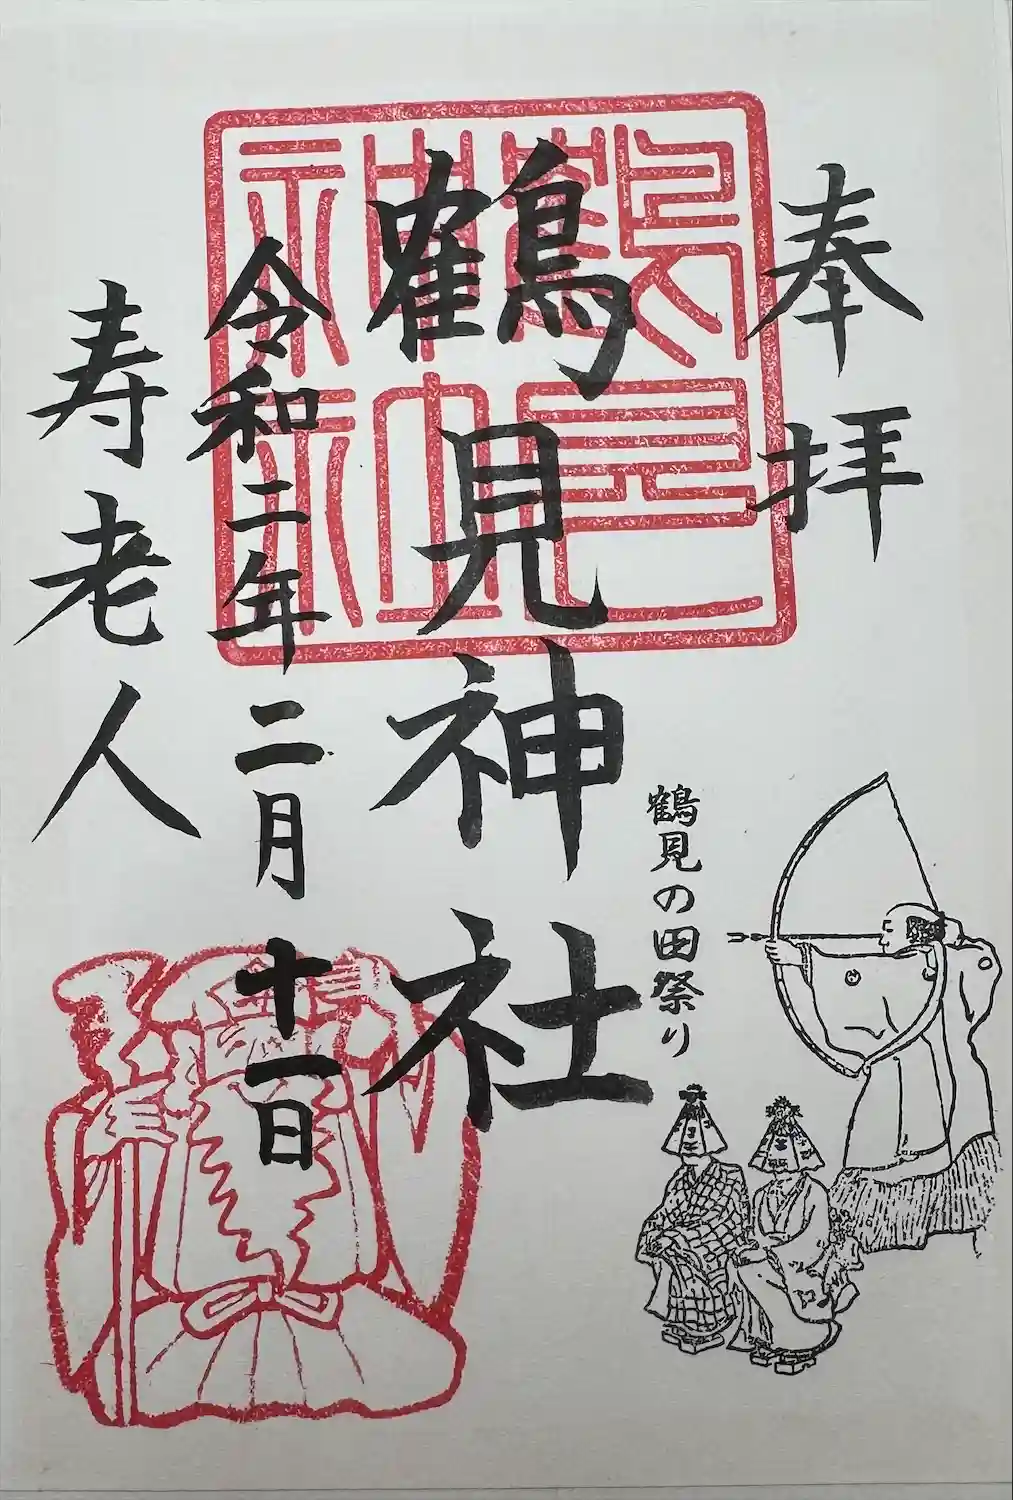 奉拝
鶴見の田祭り
鶴見神社
鶴見
神社
令和二年二月十一日
寿老人